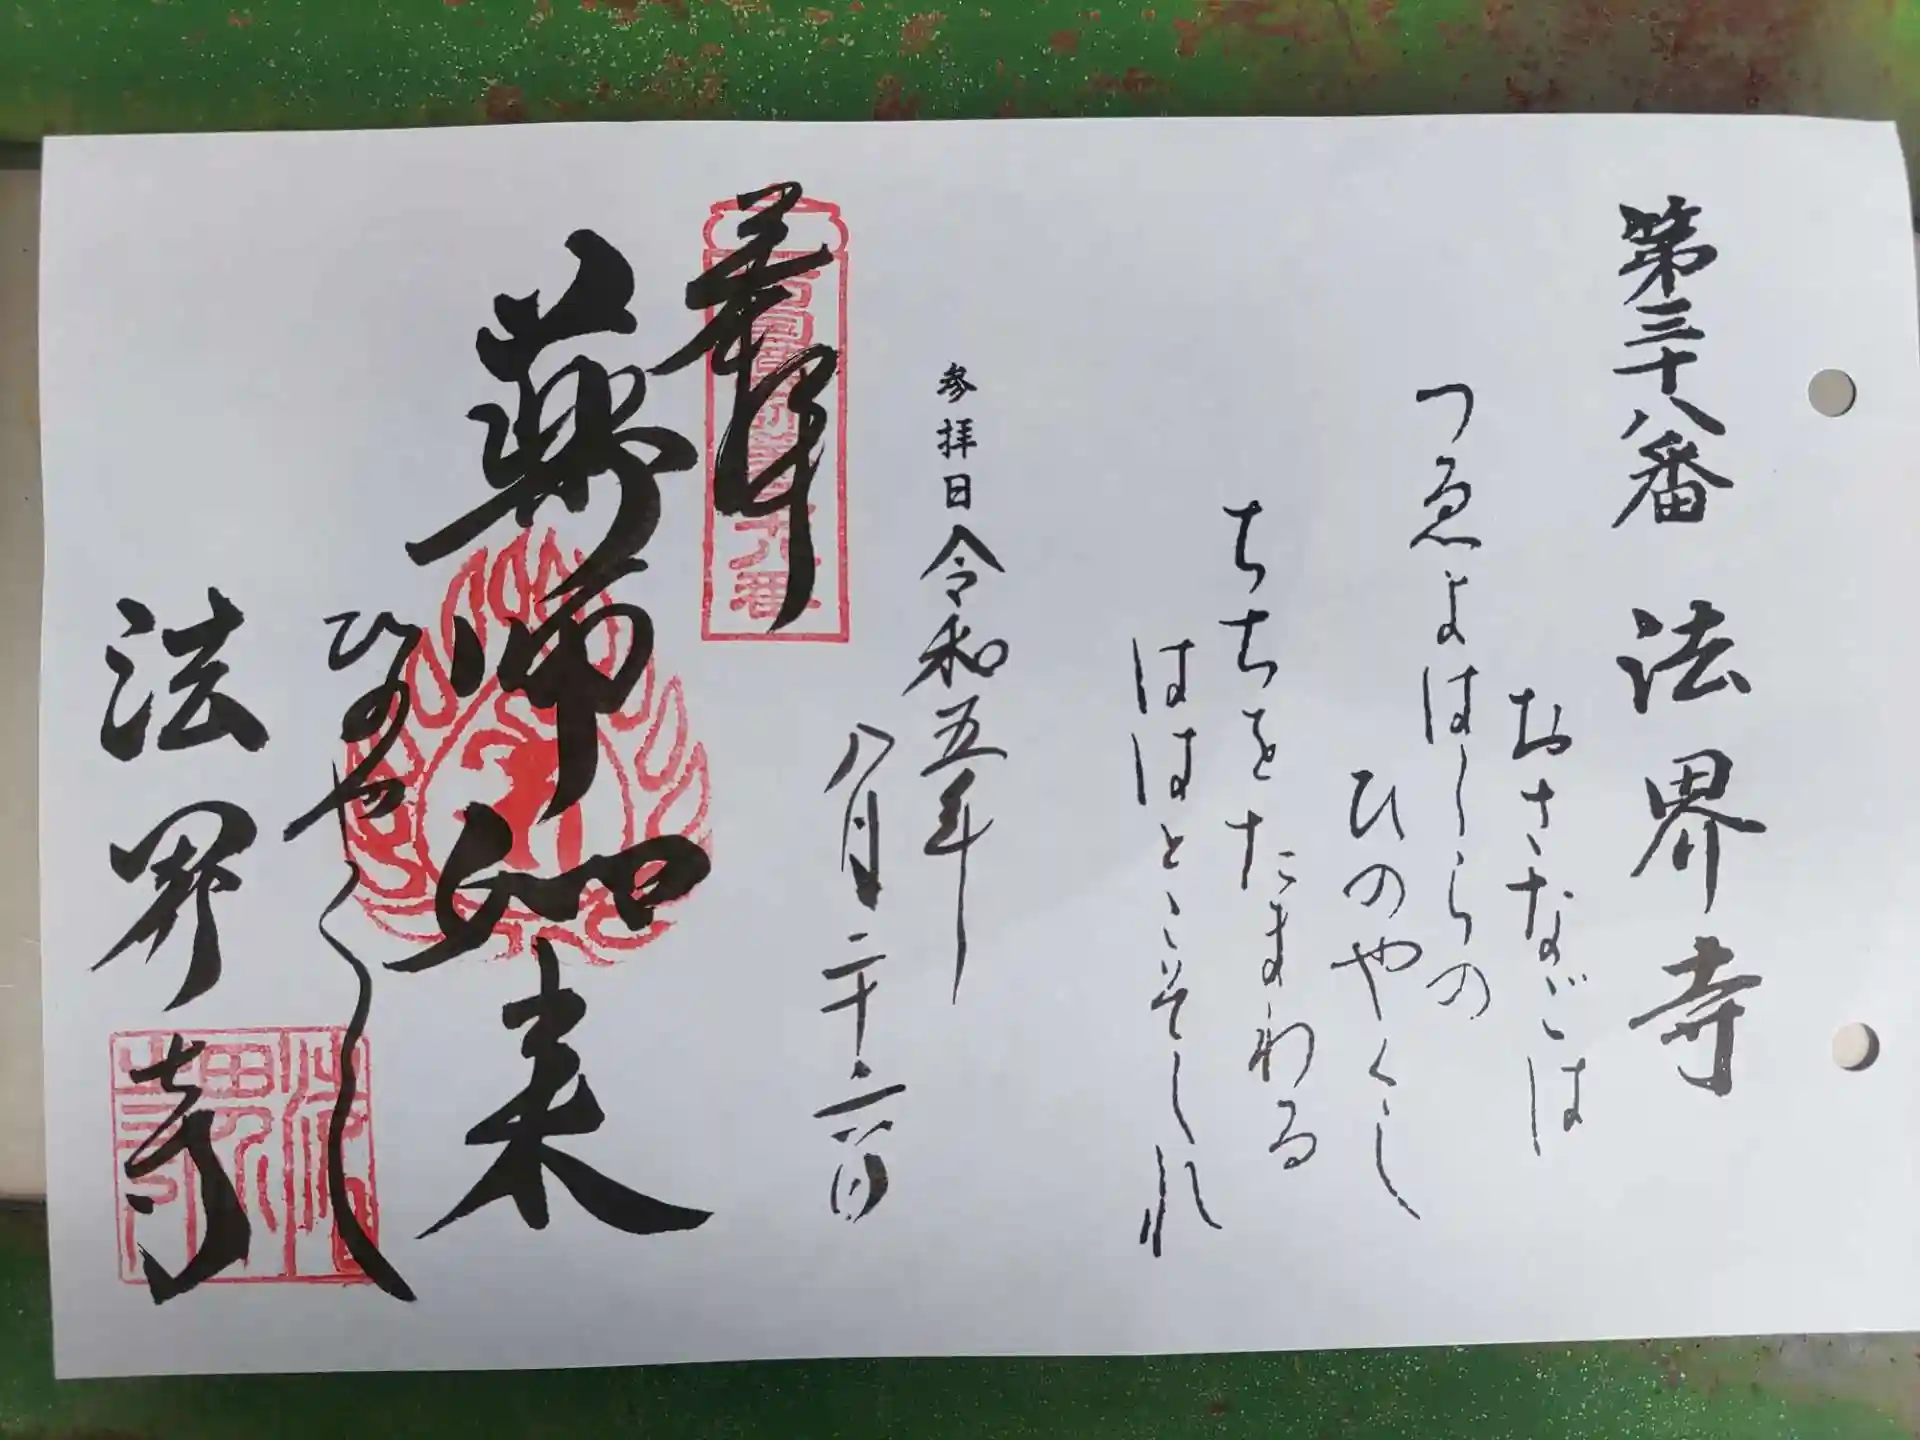 第三十八番 法界寺
おさなごは
つゑよはしらの
ひのやくし
ちちをたまわる
ははとこそしれ
参拝日 令和五年
八月二十六日
奉拝
薬師如来
ひのやくし
法界寺